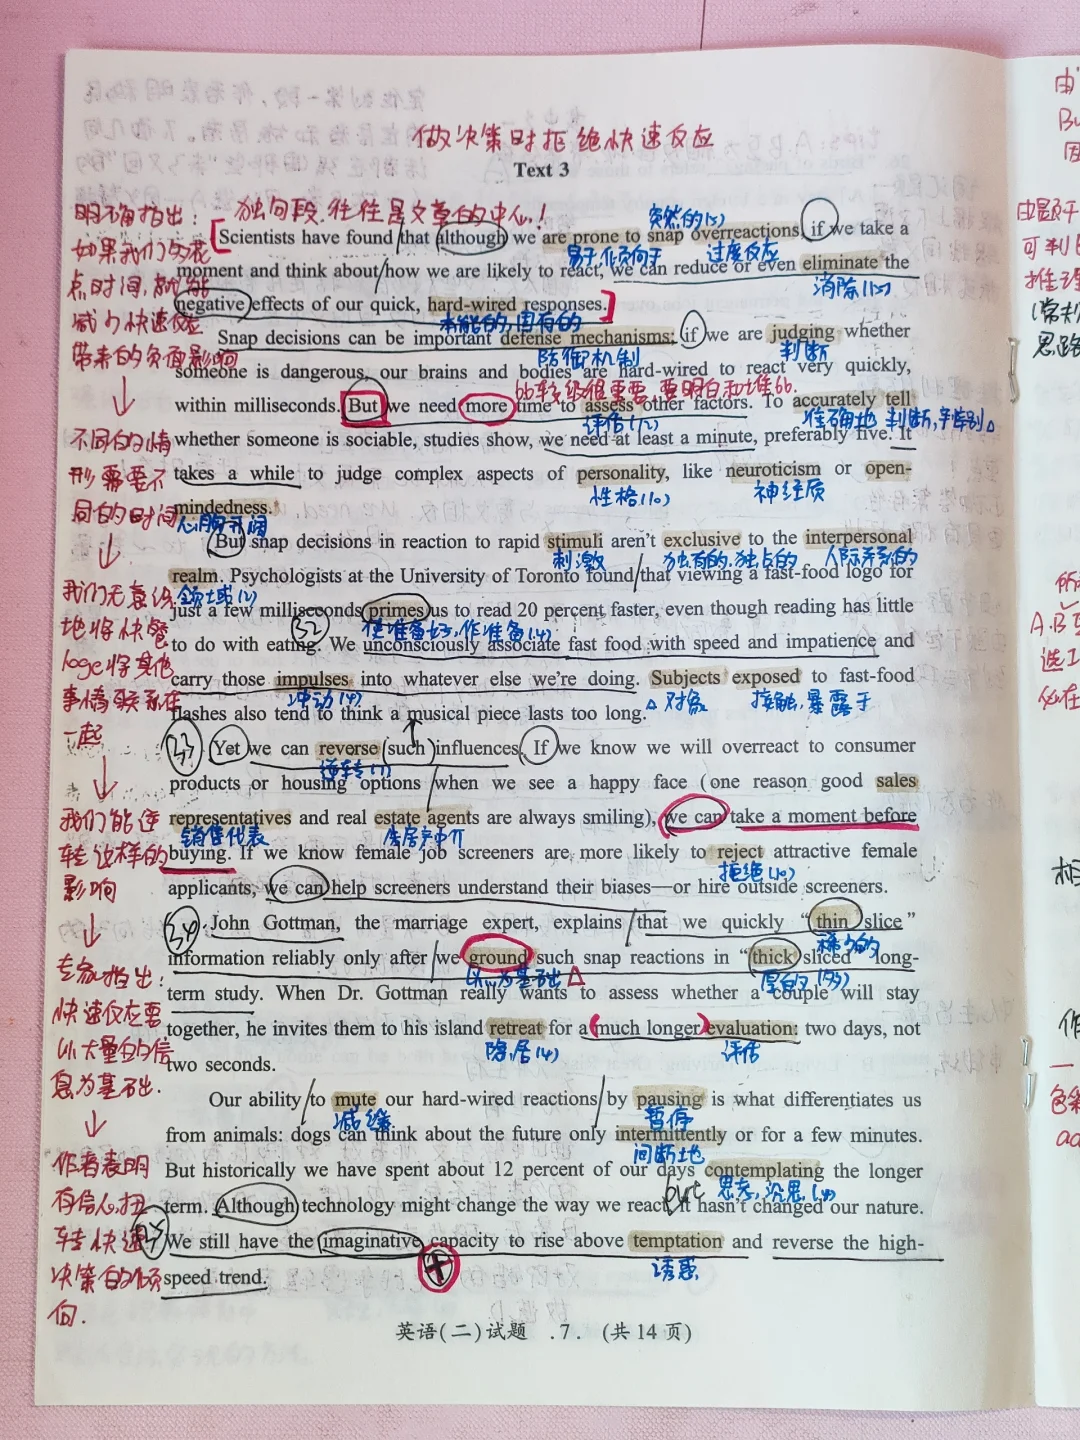 做决策时拒绝快速反应
Text 3
独句段.往往是文章的中心!
突然的(5)
明确指出:
Scientists have found that although we are prone to snap overreactions, if we take a
如果我们多花
易于作,倾向于
过度反应
moment and think about how we are likely to react, we can reduce or even eliminate the
点时间,就能
消除(12)
negative effects of our quick, hard-wired responses.
减少快速反应
本能的,固有的
Snap decisions can be important defense mechanisms; if we are judging whether
带来的负面影响
防御机制
判断
someone is dangerous, our brains and bodies are hard-wired to react very quickly,
比较级很重要,要明白和谁比.
within milliseconds. But we need more time to assess other factors. To accurately tell
评估(12)
准确地
判断,辨别
不同的情
whether someone is sociable, studies show, we need at least a minute, preferably five. It
形需要不
takes a while to judge complex aspects of personality, like neuroticism or open-
性格(10)
神经质
同的时间
mindedness.
心胸开阔
But snap decisions in reaction to rapid stimuli aren't exclusive to the interpersonal
刺激
独有的.独占的
人际关系的
realm. Psychologists at the University of Toronto found that viewing a fast-food logo for
我们无意识
领域(2)
just a few milliseconds primes us to read 20 percent faster, even though reading has little
地将快餐
32
使准备好,作准备(4)
to do with eating. We unconsciously associate fast food with speed and impatience and
logo将其他
carry those impulses into whatever else we're doing. Subjects exposed to fast-food
事情联系在
冲动(4)
对象
接触,暴露于
flashes also tend to think a musical piece lasts too long.
一起
33
Yet we can reverse such influences. If we know we will overreact to consumer
逆转(7)
products or housing options when we see a happy face (one reason good sales
我们能逆
representatives and real estate agents are always smiling), we can take a moment before
销售代表
房产中介
转这样的
buying. If we know female job screeners are more likely to reject attractive female
影响
拒绝(10)
applicants, we can help screeners understand their biases—or hire outside screeners.
34
John Gottman, the marriage expert, explains that we quickly "thin slice"
稀少的
专家指出:
information reliably only after we ground such snap reactions in "thick sliced" long-
以…为基础
厚的
快速反应要
term study. When Dr. Gottman really wants to assess whether a couple will stay
以大量的信
together, he invites them to his island retreat for a much longer evaluation: two days, not
隐居(4)
评估
息为基础.
two seconds.
Our ability to mute our hard-wired reactions by pausing is what differentiates us
减缓
暂停
from animals: dogs can think about the future only intermittently or for a few minutes.
间断地
作者表明
But historically we have spent about 12 percent of our days contemplating the longer
思考,沉思(4)
but
有信心扭
term. Although technology might change the way we react, it hasn't changed our nature.
转快速
35
We still have the imaginative capacity to rise above temptation and reverse the high-
诱惑
决策的倾
speed trend.
向.
英语(二)试题 .7. (共14页)